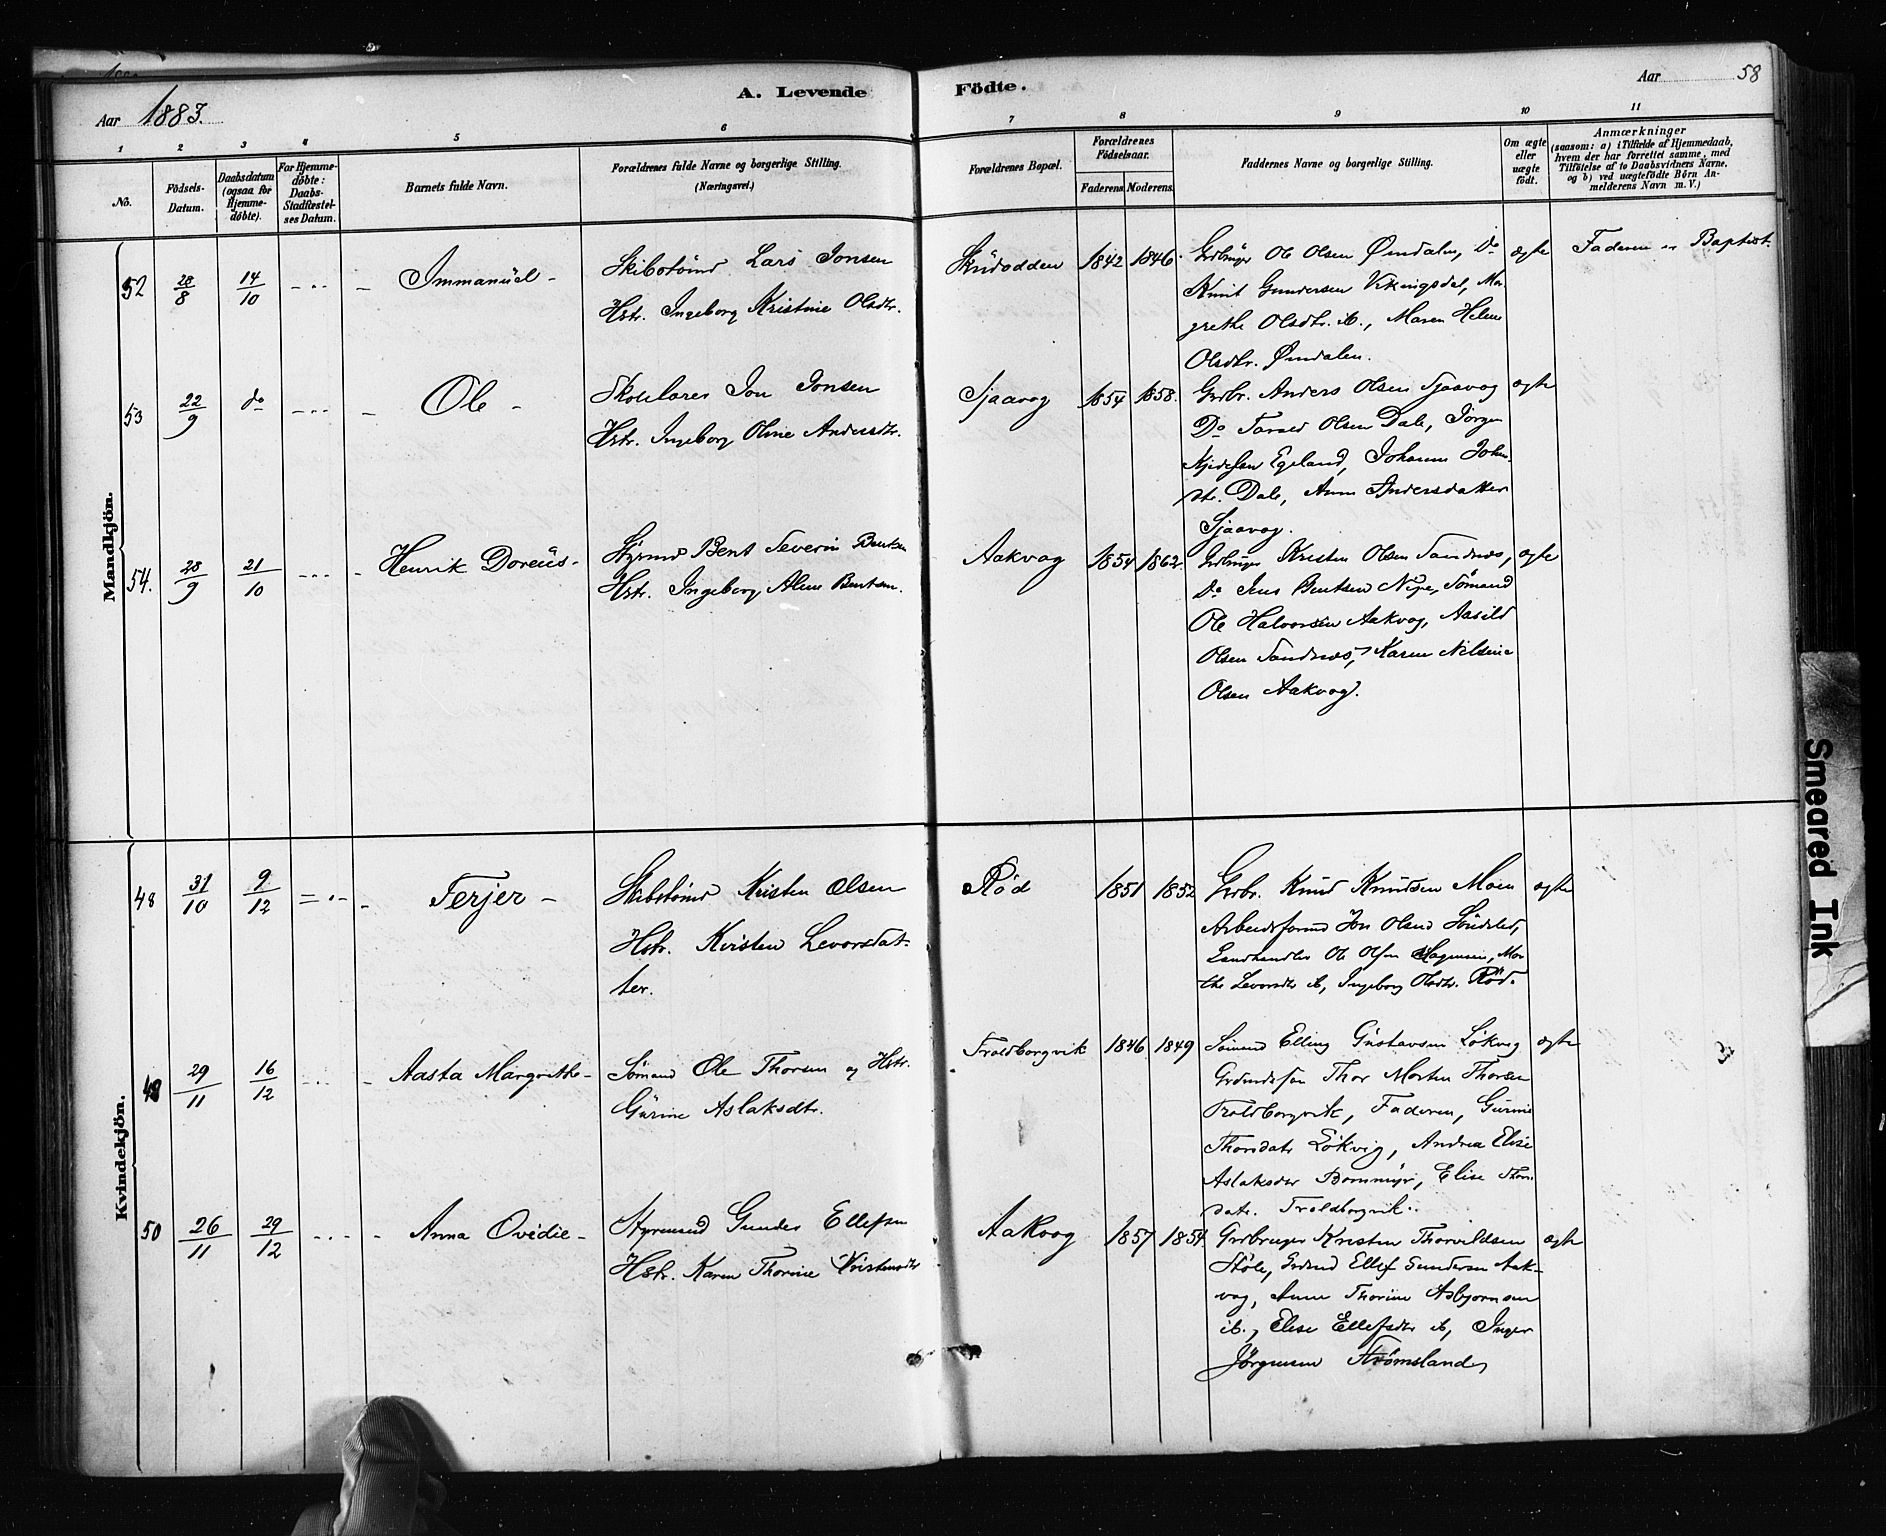 58
A. Levende Födte.
Aar 1883.
Aar
1 2 3 4 5 6 7 8 9 10 11
No.
Födsels-Datum.
Daabsdatum (ogsaa for Hjemmedöbte).
For Hjemmedöbte: Daabs-Stadfæstelses Datum.
Barnets fulde Navn.
Forældrenes fulde Navne og borgerlige Stilling. (Næringsvei.)
Forældrenes Bopæl.
Forældrenes Födselsaar.
Faderens Moderens.
Faddernes Navne og borgerlige Stilling.
Om ægte eller uægte födt.
Anmærkninger
(saasom: a) i Tilfælde af Hjemmedaab,
hvem der har forrettet samme, med
Tilföielse af to Daabsvidners Navne,
og b) ved uægtefödte Börn Anmelderens Navn m. V.)
Mandkjön.
52 28/8 14/10 Immanuel - Skibstømd Lars Jonsen
Hstr. Ingeborg Kristine Olsdtr.
Skúdodden 1842 1846. Grdbruger Ole Olsen Ømdalen, Do
Knut Gundersen Vikingsdal, Mar-
grethe Olsdtr. ib., Maren Helene
Olsdtr. Ømdalen.
ægte Faderen er Baptist.
53 22/9 do Ole - Skolelærer Jon Jonsen
Hstr. Ingeborg Oline Andersdtr.
Sjaavog 1854 1858. Grbr. Anders Olsen Sjaavog
Do Olsen Dale, Jörgen
Egeland, Johanne Johns-
dtr. Dale, Anne Andersdatter
Sjaavog.
ægte
54. 28/9 21/10 Henrik Doreús - Styrmd Bent Severin Bentsen
Hstr. Ingeborg Aline Bentsen.
Aakvog 1854 1862. Grdbruger Kristen Olsen Sandnæs,
Do Jens Bentsen Sømand
Ole Halvorsen Aakvog, Aasild
Olsen Sandnæs, Karen Nilsine
Olsen Aakvog.
ægte
Kvindekjön.
48 31/10 9/12 Terjer - Skibstømd Kristen Olsen
Hstr. Kristen Levorsdat-
ter.
Röd 1851 1852 Grbr. Knud Knudsen Moen
Arbeidsformd Jon Olsen Söndeled,
Landhandler Ole Olsen Mar-
the Levorsdtr ib, Ingeborg Olsdtr. Röd.
ægte
49 29/11 16/12 Aasta Margrethe - Sømand Ole Thorsen og Hstr.
Gúrine Aslaksdtr.
Troldborgvik 1846 1849 Sømand Elling Gústavsen Lökvig
Thor Morten Thorsen
Troldborgvik, Faderen, Gurine
Thorsdatr Lökvig, Andrea Elise
Aslaksdtr Bommyr, Elise Thors-
datr. Troldborgvik.
ægte
50 26/11 29/12 Anna Ovidie - Styrmand Gunder Ellefsen
Hstr. Karen Thorine Kristensdtr
Aakvog 1857 1854. Grdbruger Kristen Thorvildsen
Stöle, Ellef Gundersen Aak-
vog, Anne Thorine Asbjornsen
ib., Elise Ellefsdtr ib, Inger
Jörgensen Strömsland,
ægte
Smeared Ink